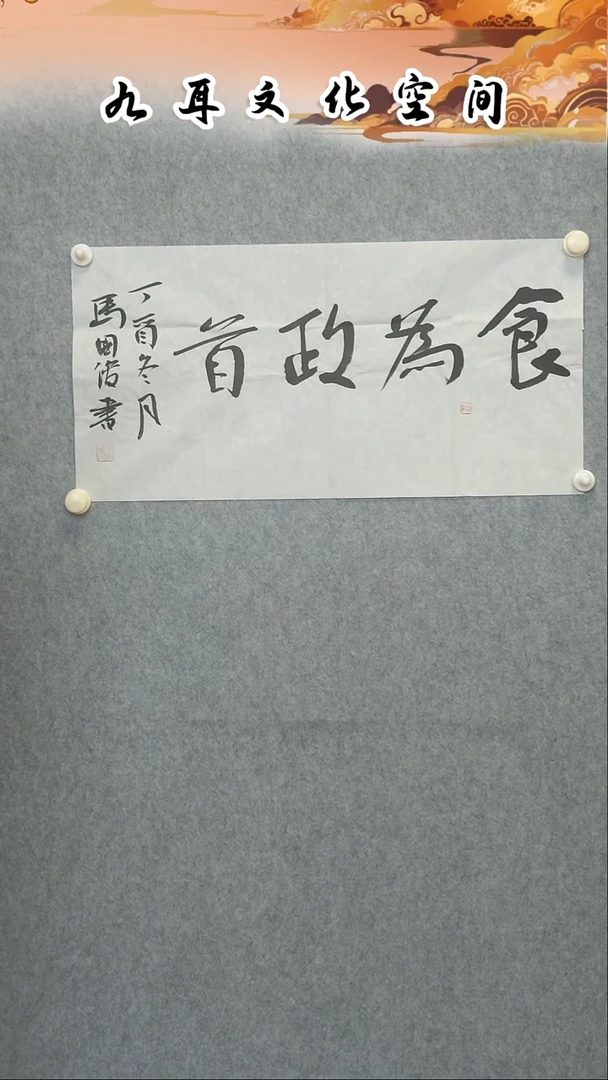 九耳文化空间
食為政首
丁酉冬月
馬國僑書